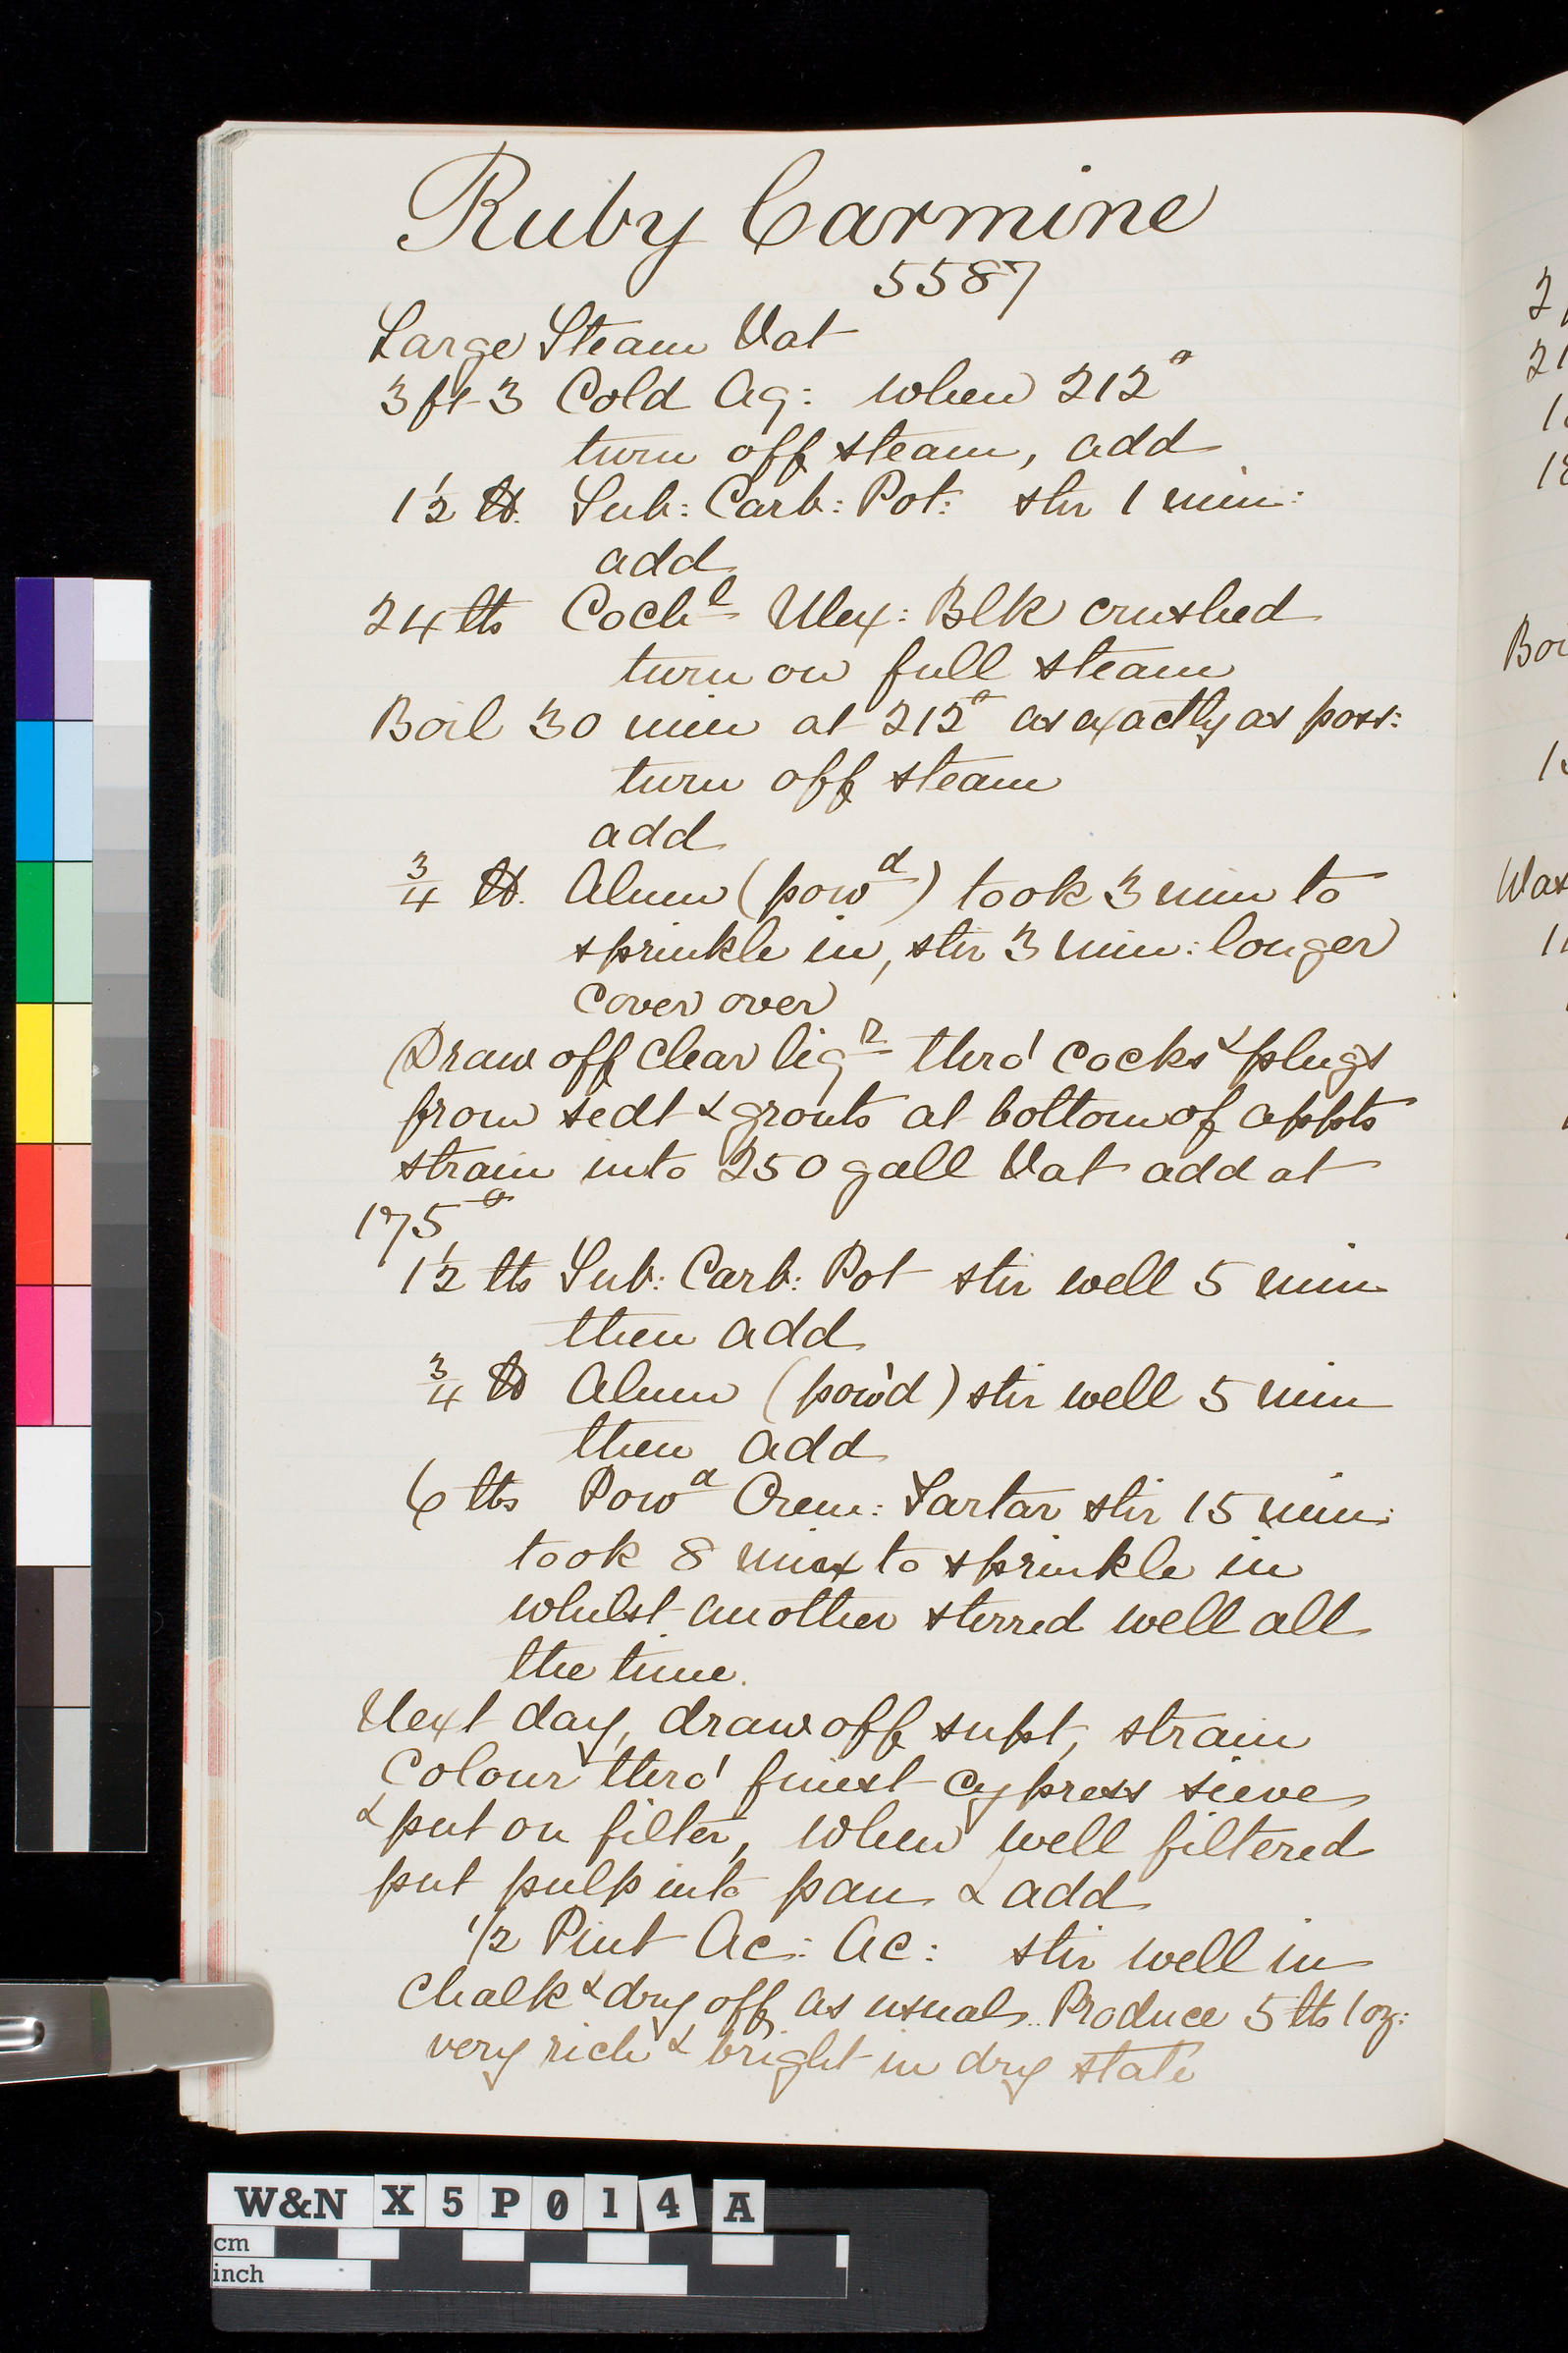 Ruby Carmine
5587
Large Steam Vat
3 ft 3 Cold Aq: when 212°
turn off steam, add
1½ lb. Sub: Carb: Pot: stir 1 min:
add
24 lbs Cochl Mex: Blk crushed
turn on full steam
Boil 30 min at 212° as exactly as poss:
turn off steam
add
¾ lb. Alum (powd) took 3 min to
sprinkle in, stir 3 min: longer
cover over
Draw off clear liqr thro' cocks & plugs
from sedt & grouts at bottom of appts
strain into 250 gall Vat add at
175°
1½ lbs Sub: Carb: Pot stir well 5 min
then add
¾ lb Alum (pow'd) stir well 5 min
then add
6 lbs Powd Crem: Tartar stir 15 min:
took 8 min to sprinkle in
whilst another stirred well all
the time.
Next day, draw off supt, strain
Colour thro' finest cypress sieve
& put on filter, when well filtered
put pulp into pan & add
1/2 Pint Ac: Ac: stir well in
chalk & dry off as usual. Produce 5 lbs 1 oz:
very rich & bright in dry state
2
21
1
18
Boi
1
Was
1
W&N X5P014A
cm
inch